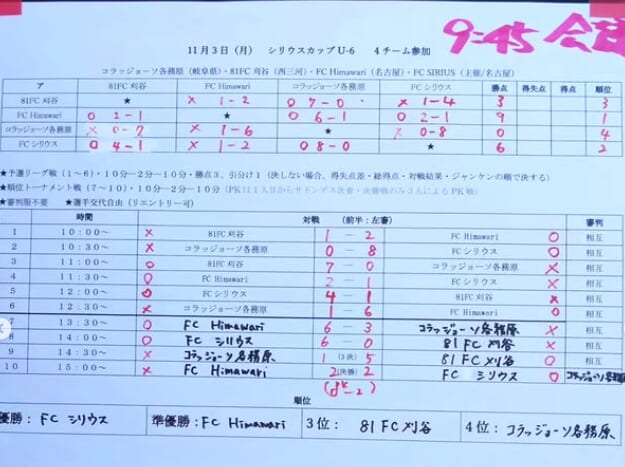 9:45 会
11月3日（月）　シリウスカップU-6　4チーム参加
コラッジョーソ各務原（岐阜県）・81FC刈谷（西三河）・FC Himawari（名古屋）・FC SIRIUS（主催/名古屋）
ア 81FC刈谷 FC Himawari コラッジョーソ各務原 FCシリウス 勝点 得失点 得点 順位
81FC刈谷 ★ × 1-2 ○ 7-0 × 1-4 3 3
FC Himawari ○ 2-1 ★ ○ 6-1 ○ 2-1 9 1
コラッジョーソ各務原 × 0-7 × 1-6 ★ ×0-8 0 4
FCシリウス ○ 4-1 × 1-2 ○ 8-0 ★ 6 2
★予選リーグ戦（1～6）・10分―2分―10分・勝点3、引分け1（決しない場合、得失点差・総得点・対戦結果・ジャンケンの順で決する）
★順位トーナメント戦（7～10）・10分―2分―10分（PKは11人目からサドンデス決着・決勝戦のみ3人によるPK戦）
★審判服不要　★選手交代自由（リエントリー可）
時間 対戦 （前半：左審） 審判
1 10:00～ × 81FC刈谷 1 - 2 FC Himawari ○ 相互
2 10:30～ × コラッジョーソ各務原 0 - 8 FCシリウス ○ 相互
3 11:00～ ○ 81FC刈谷 7 - 0 コラッジョーソ各務原 × 相互
4 11:30～ ○ FC Himawari 2 - 1 FCシリウス × 相互
5 12:00～ ○ FCシリウス 4 - 1 81FC刈谷 × 相互
6 12:30～ × コラッジョーソ各務原 1 - 6 FC Himawari ○ 相互
7 13:30～ ○ FC Himawari 6 - 3 コラッジョーソ各務原 × 相互
8 14:00～ ○ FC シリウス 6 - 0 81FC 刈谷 × 相互
9 14:30～ × コラッジョーソ各務原 1 (3決) 5 81FC刈谷 ○ 相互
10 15:00～ × FC Himawari 2 (決勝) 2 FC シリウス ○ コラッジョーソ各務原
順位
優勝：FC シリウス 準優勝：FC Himawari 3位： 81FC刈谷 4位：コラッジョーソ各務原